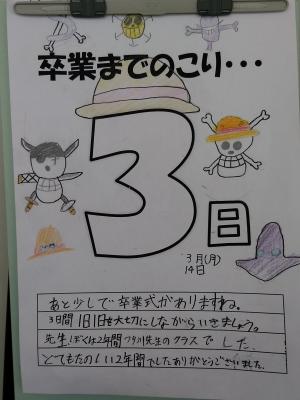 卒業までのこり・・・
3日
3月(月)
14日
あと少しで卒業式がありますね。
3日間1日1日を大切にしながらいきましょう。
先生、ぼくは2年間 川先生のクラスでした。
とてもたのしい2年間でしたありがとうございました。